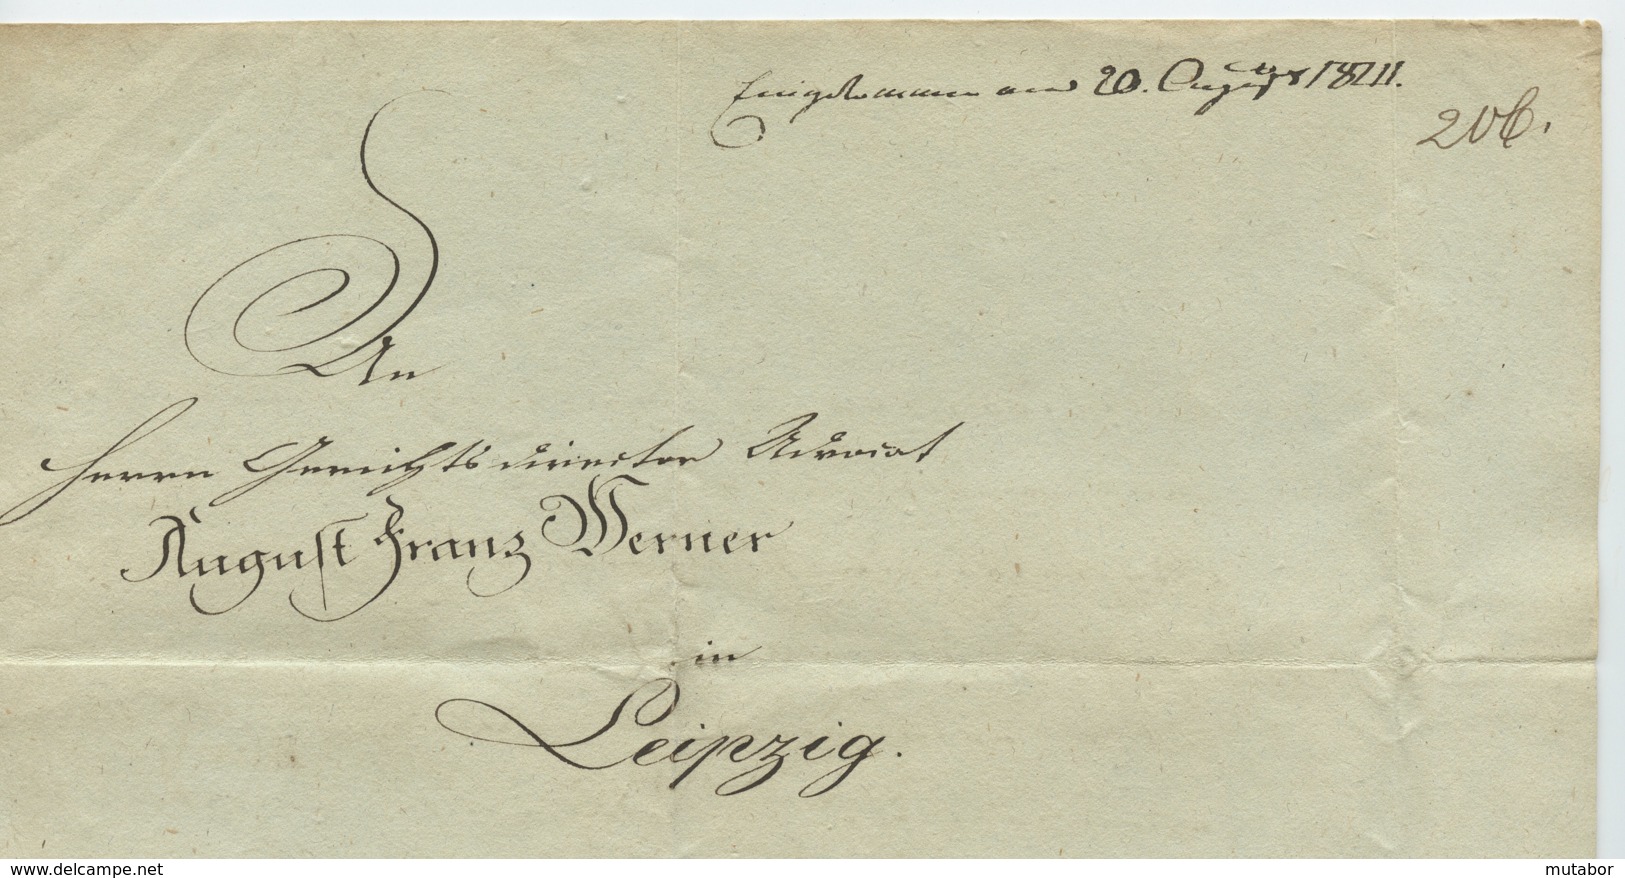 Eingekommen am 20. August 1841.
206.
An
Herrn Gerichtsdirector Advocat
August Franz Werner
in
Leipzig.
www.delcampe.net
mutabor